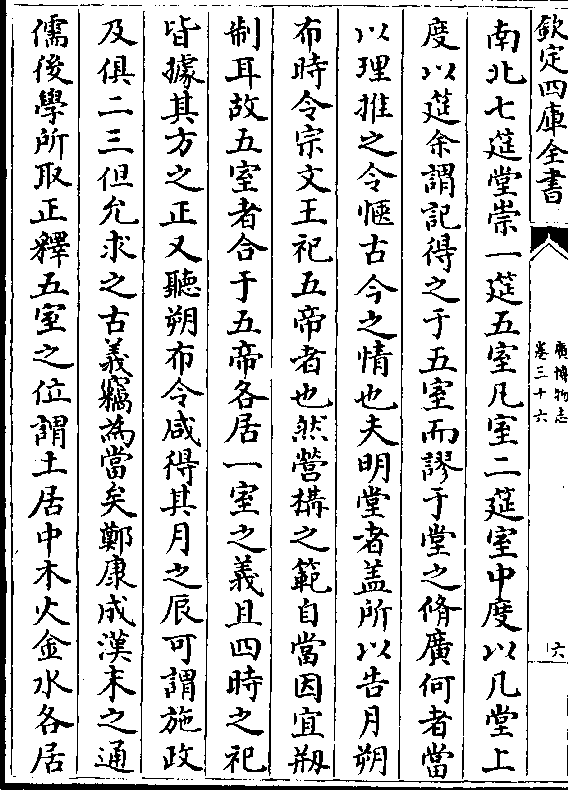 欽定四庫全書
廣博物志
卷三十六
六
南北七筵堂崇一筵五室凡室二筵室中度以几堂上
度以筵余謂記得之于五室而謬于堂之脩廣何者當
以理推之令愜古今之情也夫明堂者盖所以告月朔
布時令宗文王祀五帝者也然營構之範自當因宜刱
制耳故五室者合于五帝各居一室之義且四時之祀
皆據其方之正又聽朔布令咸得其月之辰可謂施政
及俱二三但允求之古義竊為當矣鄭康成漢末之通
儒後學所取正釋五室之位謂土居中木火金水各居